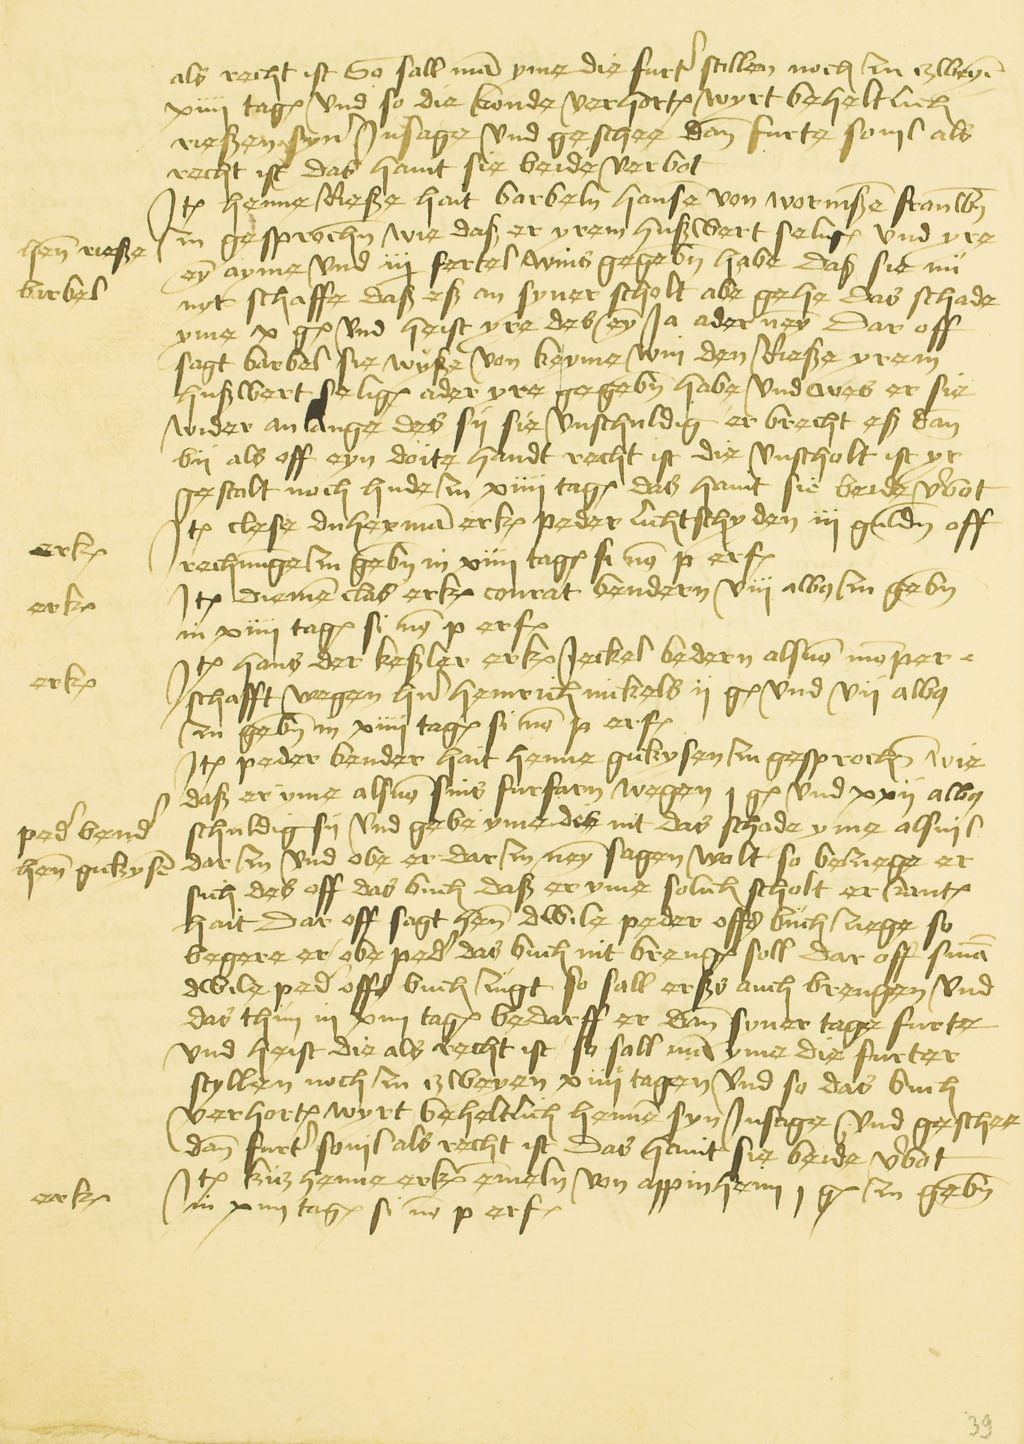 als recht ist So sall mā yme die furt̄ stellen noch zu zweyē
xiiii tagē vnd so die konde verhortē wyrt beheltlich
rießen syn̄ Insage vnd geschee dan̄ furte souil als
recht ist das haint sie beide verbot
Itē henne Rieße hait barbeln hanse von wormße frauwē
zu gesprochn wie daß er yrem hußwert seligē vnd yre
ey ayme vnd iii fertel wins gegebn̄ habe daß sie nü
nyt schaffe daß eß an syner scholt abe gehe das schade
yme x gē vnd heist yre des ey Ja ader ney Dar off
sagt barbel sie wyße von keyme win den Rieße yrem
hußwert seligē ader yre gegebn̄ habe vnd wes er sie
wider an lange des sy sie vnschuldig er brecht eß dan
bii als off eyn doite handt recht ist die vnscholt ist yr
gestalt noch hude zu xiiii tagē das haint sie beide v̄bot
Itē clese duhermā erkē peder lichtschyden iii guldn off
rechnunge zu gebn̄ in xiiii tagē si nō p erfē
Itē diemē clas erkē conrat bendern viii albꝯ zu gebn̄
in xiiii tagē si nō p erfē
Itē hans der keßler erkē Jeckel bedern als vō momper
schafft wegen hr̄ heinrich nickels ii gē vnd vii albꝯ
zu gebn̄ in xiiii tagē si nō p erfē
Itē peder bender hait henne gickysen zu gesprochē wie
daß er yme als vō sins furfarn wegen i gē vnd xxii albꝯ
schuldig sy vnd gebe yme des nit das schade yme alsuil
dar zu vnd obe er dar zu ney sagen wolt so beziege er
sich des off das buch daß er yme solich scholt er kantē
hait Dar off sagt hen̄ dwile peder offs buch ziege so
begere er obe ped̄ das buch nit brengē soll dar off s mā
dwile ped̄ offs buch zugt so sall erßs auch brengen vnd
das thun in xiiii tagē bedarff er dan̄ syner tage furte
vnd heist die als recht ist so sall mā yme die furter
styllen noch zu zweyen xiiii tagen vnd so das buch
verhortē wyrt beheltlich henne syn Insage vnd geschee
dan̄ furt̄ souil als recht ist Das haint sie beide v̄bot
Itē kitz henne erkē emeln von appinheim i gē zu gebn̄
in xiiii tagē si nō p erfē
hen̄ rieße
barbel
erkē
erkē
erkē
ped̄ bend̄
hen̄ gickysē
erkē
39